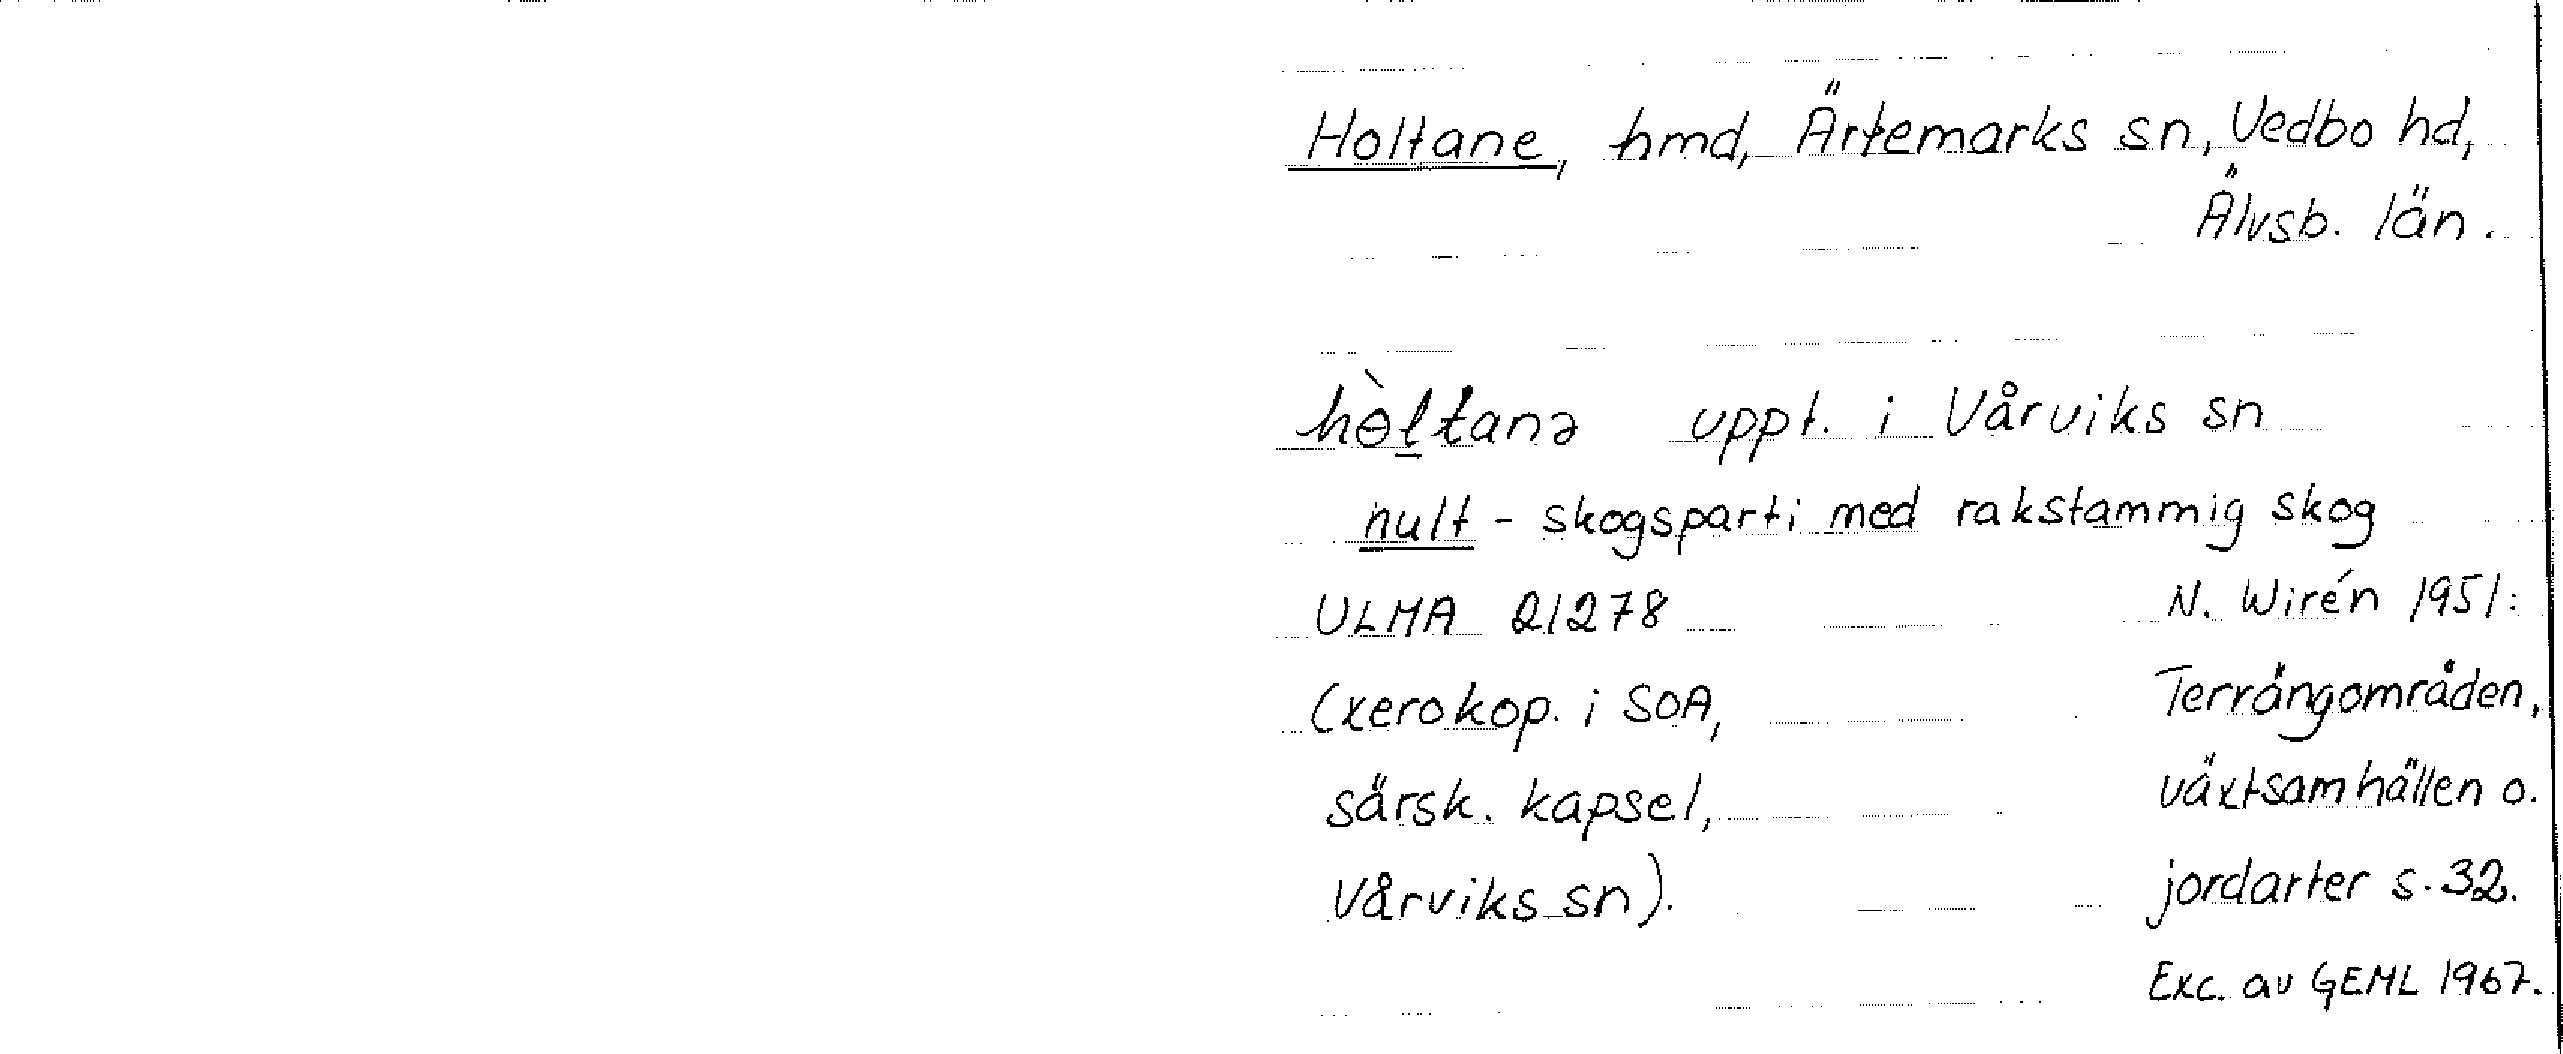 Holtane, hmd, Ärtemarks sn, Vedbo hd,
Älvsb. län.
hɵ̀ltanə uppt. i Vårviks sn
hult - skogsparti med rakstammig skog
ULMA 21278 N. Wirén 1951:
(xerokop. i SOA, Terrängområden,
särsk. kapsel, växtsamhällen o.
Vårviks sn). jordarter s. 32.
Exc. av GEML 1967.